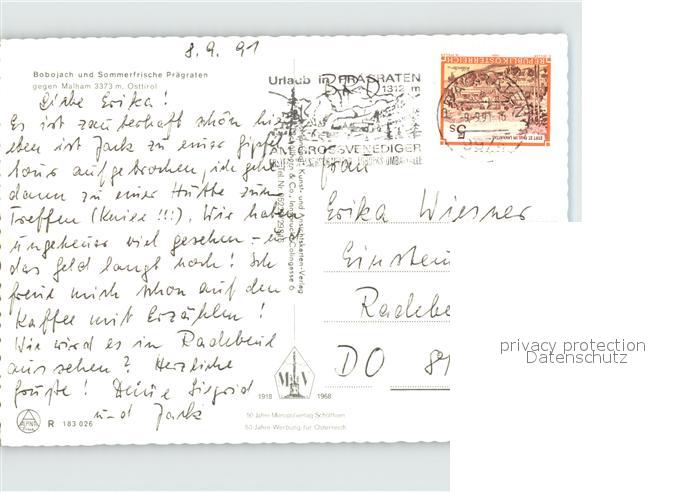 8.9.91
Bobojach und Sommerfrische Prägraten
gegen Malham 3373 m, Osttirol
Liebe Erika!
Es ist zauberhaft schön hier
eben ist Jack zu einer Gipfel
tour aufgebrochen, ich gehe
dann zu einer Hütte zum
Treffen (Knie !!!). Wir haben
ungeheuer viel gesehen - und
das Geld langt noch! Ich
freue mich schon auf den
Kaffee mit Erzählen!
Wie wird es in Radebeul
aussehen? Herzliche
Grüße! Deine Sigrid
und Jack
R 183 026
Urlaub in PRÄGRATEN
1312 m
AM GROSSVENEDIGER
BRD
REPUBLIK ÖSTERREICH
5s
Frau
Erika Wiesner
Einstein
Radebe
DO 81
1918 1968
50 Jahre Monopolverlag Schöllhorn
50 Jahre Werbung für Österreich
privacy protection
Datenschutz